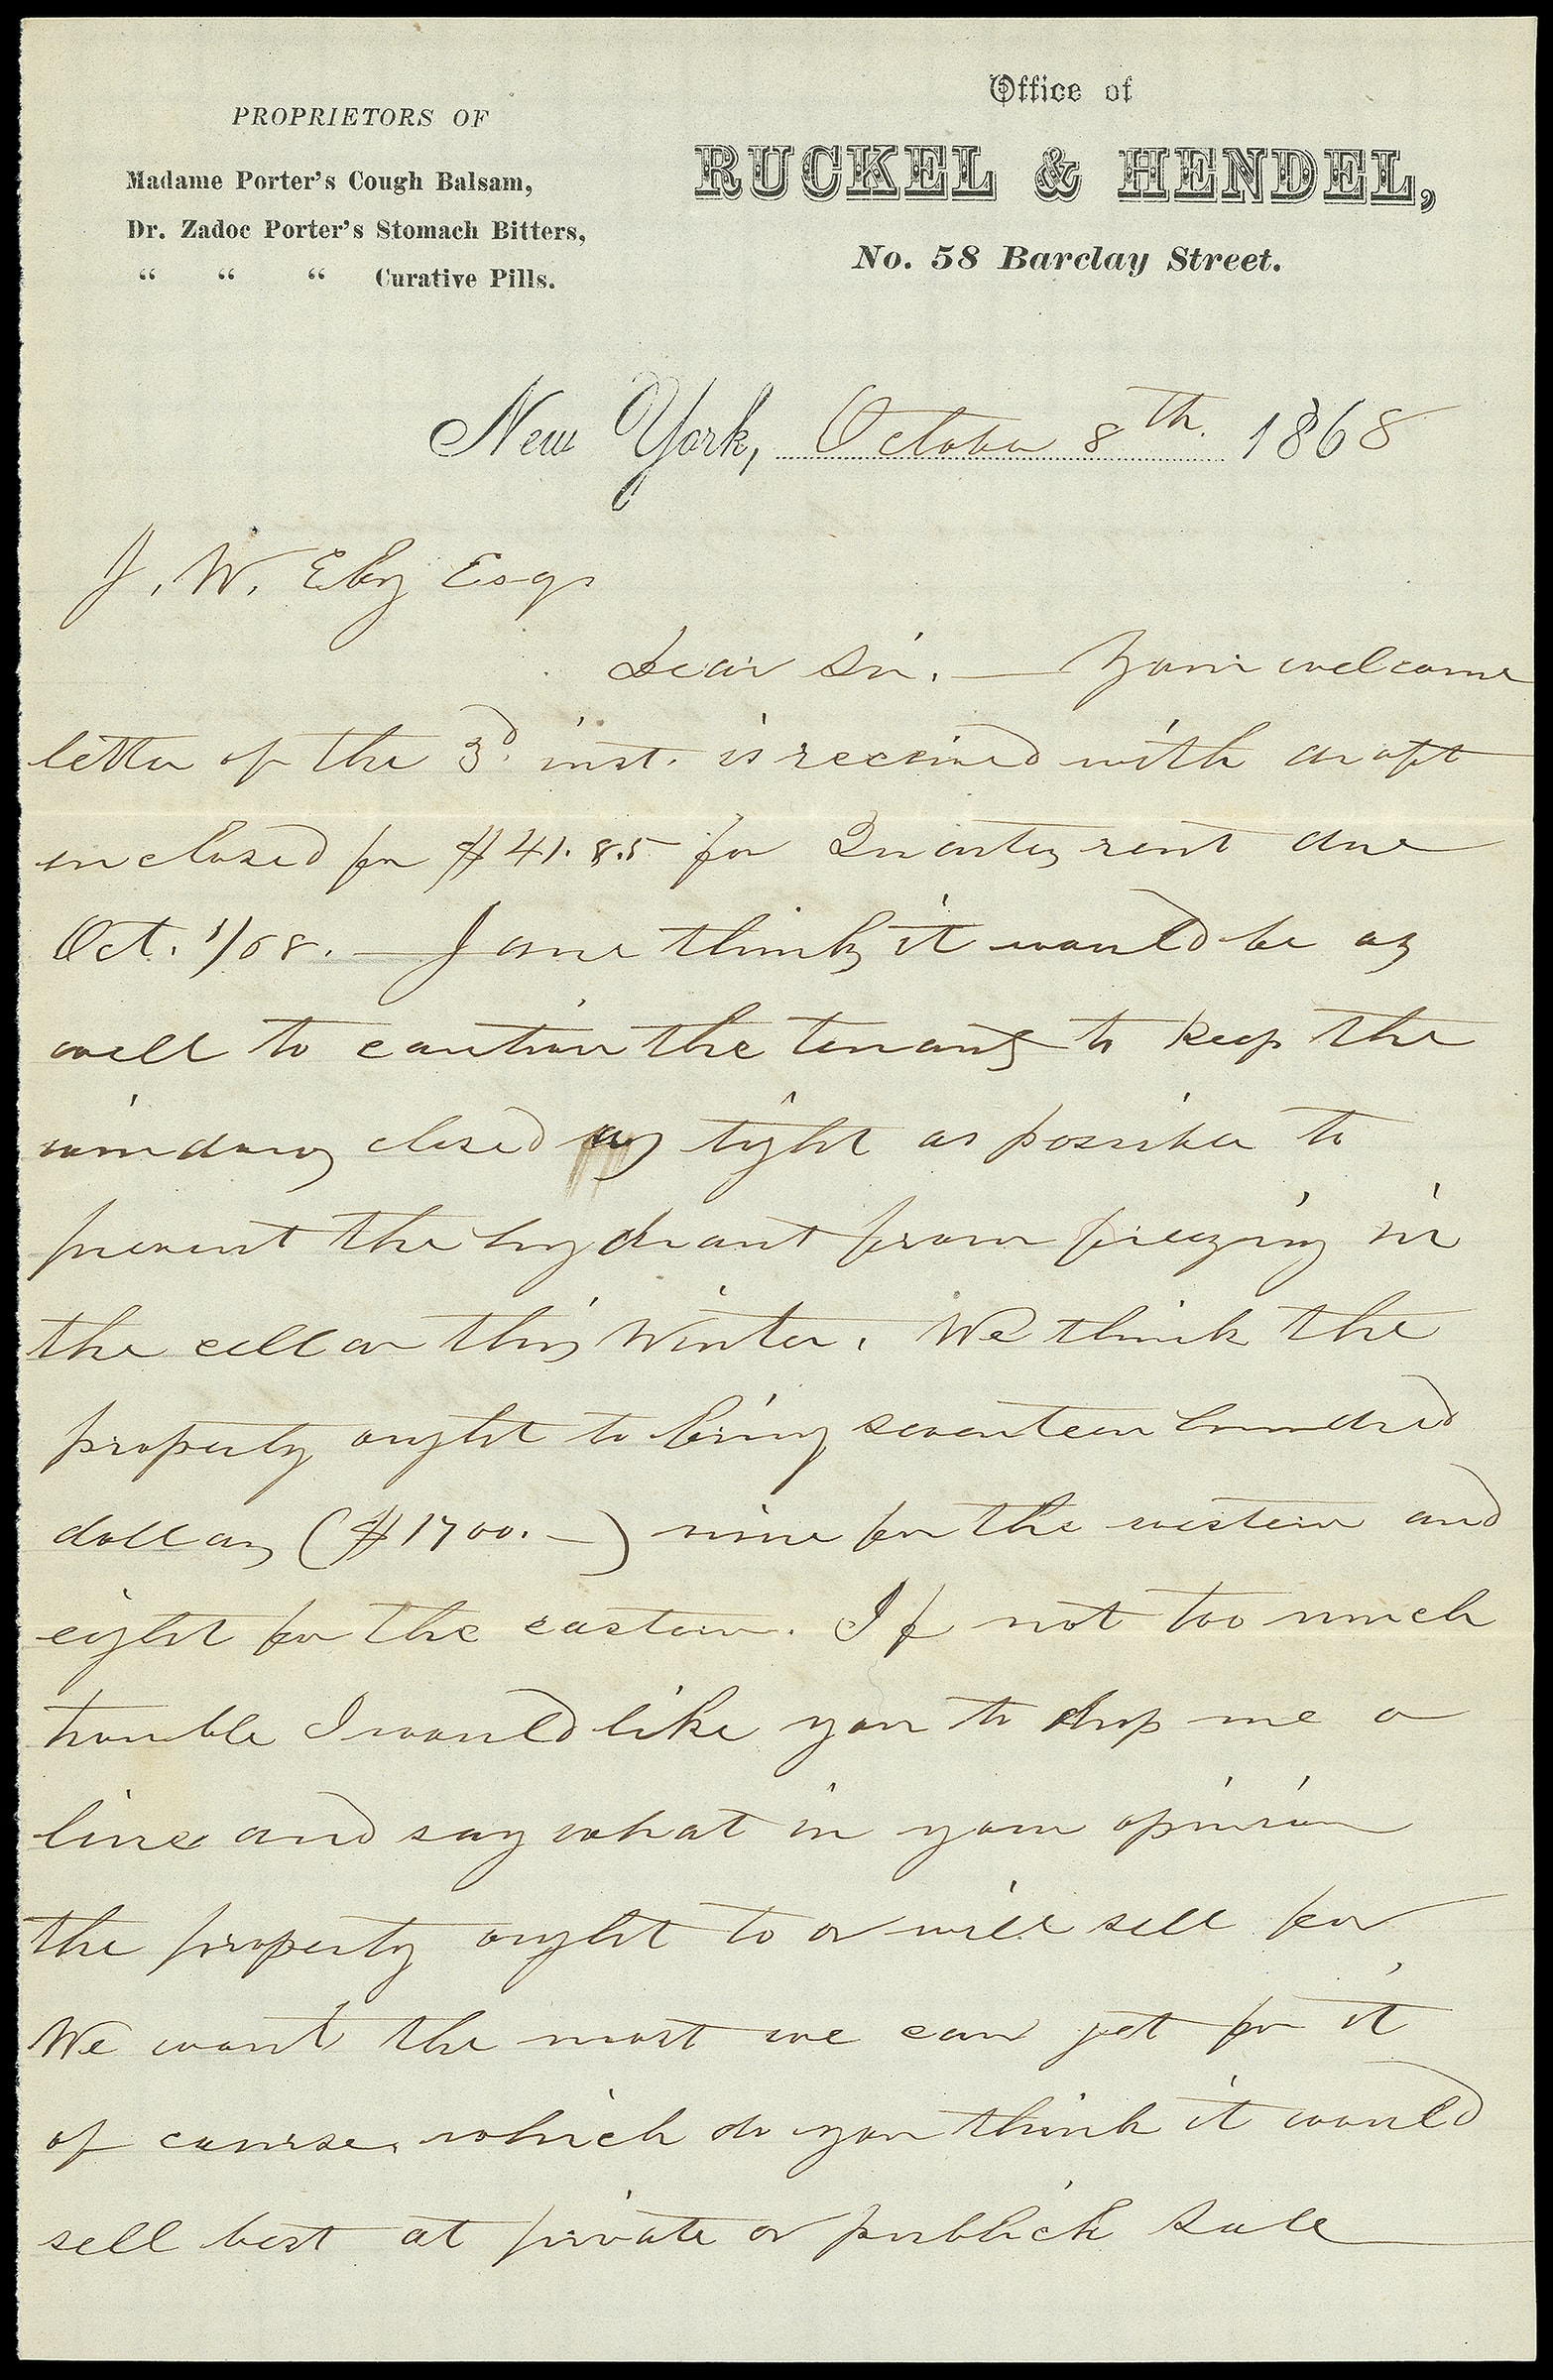 Office of
RUCKEL & HENDEL,
No. 58 Barclay Street.
PROPRIETORS OF
Madame Porter's Cough Balsam,
Dr. Zadoc Porter's Stomach Bitters,
“ “ “ Curative Pills.
New York, October 8th. 1868
J. W. Eby Esqr
Dear Sir. — Your welcome
letter of the 3d. inst. is received with draft
inclosed for $41.85 for Quarters rent due
Oct. 1/68. — Jane thinks it would be as
well to caution the tenants to keep the
windows closed as tight as possible to
prevent the hydrant from freezing in
the cellar this Winter. We think the
property ought to bring seventeen hundred
dollars ($1700. —) nine for the western and
eight for the eastern. If not too much
trouble I would like you to drop me a
line and say what in your opinion
the property ought to or will sell for
We want the most we can get for it
of course. which do you think it would
sell best at private or publick sale